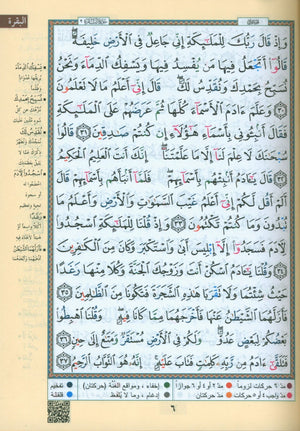 البقرة
وَإِذْ قَالَ رَبُّكَ لِلْمَلَٰٓئِكَةِ إِنِّى جَاعِلٌ فِى ٱلْأَرْضِ خَلِيفَةً
قَالُوٓا۟ أَتَجْعَلُ فِيهَا مَن يُفْسِدُ فِيهَا وَيَسْفِكُ ٱلدِّمَآءَ وَنَحْنُ
نُسَبِّحُ بِحَمْدِكَ وَنُقَدِّسُ لَكَ قَالَ إِنِّىٓ أَعْلَمُ مَا لَا تَعْلَمُونَ
٣٠ وَعَلَّمَ ءَادَمَ ٱلْأَسْمَآءَ كُلَّهَا ثُمَّ عَرَضَهُمْ عَلَى ٱلْمَلَٰٓئِكَةِ
فَقَالَ أَنۢبِـُٔونِى بِأَسْمَآءِ هَٰٓؤُلَآءِ إِن كُنتُمْ صَٰدِقِينَ ٣١ قَالُوا۟
سُبْحَٰنَكَ لَا عِلْمَ لَنَآ إِلَّا مَا عَلَّمْتَنَآ إِنَّكَ أَنتَ ٱلْعَلِيمُ ٱلْحَكِيمُ
٣٢ قَالَ يَٰٓـَٔادَمُ أَنۢبِئْهُم بِأَسْمَآئِهِمْ فَلَمَّآ أَنۢبَأَهُم بِأَسْمَآئِهِمْ قَالَ
أَلَمْ أَقُل لَّكُمْ إِنِّىٓ أَعْلَمُ غَيْبَ ٱلسَّمَٰوَٰتِ وَٱلْأَرْضِ وَأَعْلَمُ مَا
تُبْدُونَ وَمَا كُنتُمْ تَكْتُمُونَ ٣٣ وَإِذْ قُلْنَا لِلْمَلَٰٓئِكَةِ ٱسْجُدُوا۟
لِـَٔادَمَ فَسَجَدُوٓا۟ إِلَّآ إِبْلِيسَ أَبَىٰ وَٱسْتَكْبَرَ وَكَانَ مِنَ ٱلْكَٰفِرِينَ
٣٤ وَقُلْنَا يَٰٓـَٔادَمُ ٱسْكُنْ أَنتَ وَزَوْجُكَ ٱلْجَنَّةَ وَكُلَا مِنْهَا رَغَدًا
حَيْثُ شِئْتُمَا وَلَا تَقْرَبَا هَٰذِهِ ٱلشَّجَرَةَ فَتَكُونَا مِنَ ٱلظَّٰلِمِينَ ٣٥
فَأَزَلَّهُمَا ٱلشَّيْطَٰنُ عَنْهَا فَأَخْرَجَهُمَا مِمَّا كَانَا فِيهِ وَقُلْنَا ٱهْبِطُوا۟
بَعْضُكُمْ لِبَعْضٍ عَدُوٌّ وَلَكُمْ فِى ٱلْأَرْضِ مُسْتَقَرٌّ وَمَتَٰعٌ إِلَىٰ حِينٍ ٣٦
فَتَلَقَّىٰٓ ءَادَمُ مِن رَّبِّهِۦ كَلِمَٰتٍ فَتَابَ عَلَيْهِ إِنَّهُۥ هُوَ ٱلتَّوَّابُ ٱلرَّحِيمُ ٣٧
مدّ ٦ حركات لزوماً مدّ ٢ أو ٤ أو ٦ جوازاً إخفاء، ومواقع الغنّة (حركتان) تفخيم
مدّ واجب ٤ أو ٥ حركات مدّ حركتان إدغام، وما لا يُلفَظ قلقلة
٦